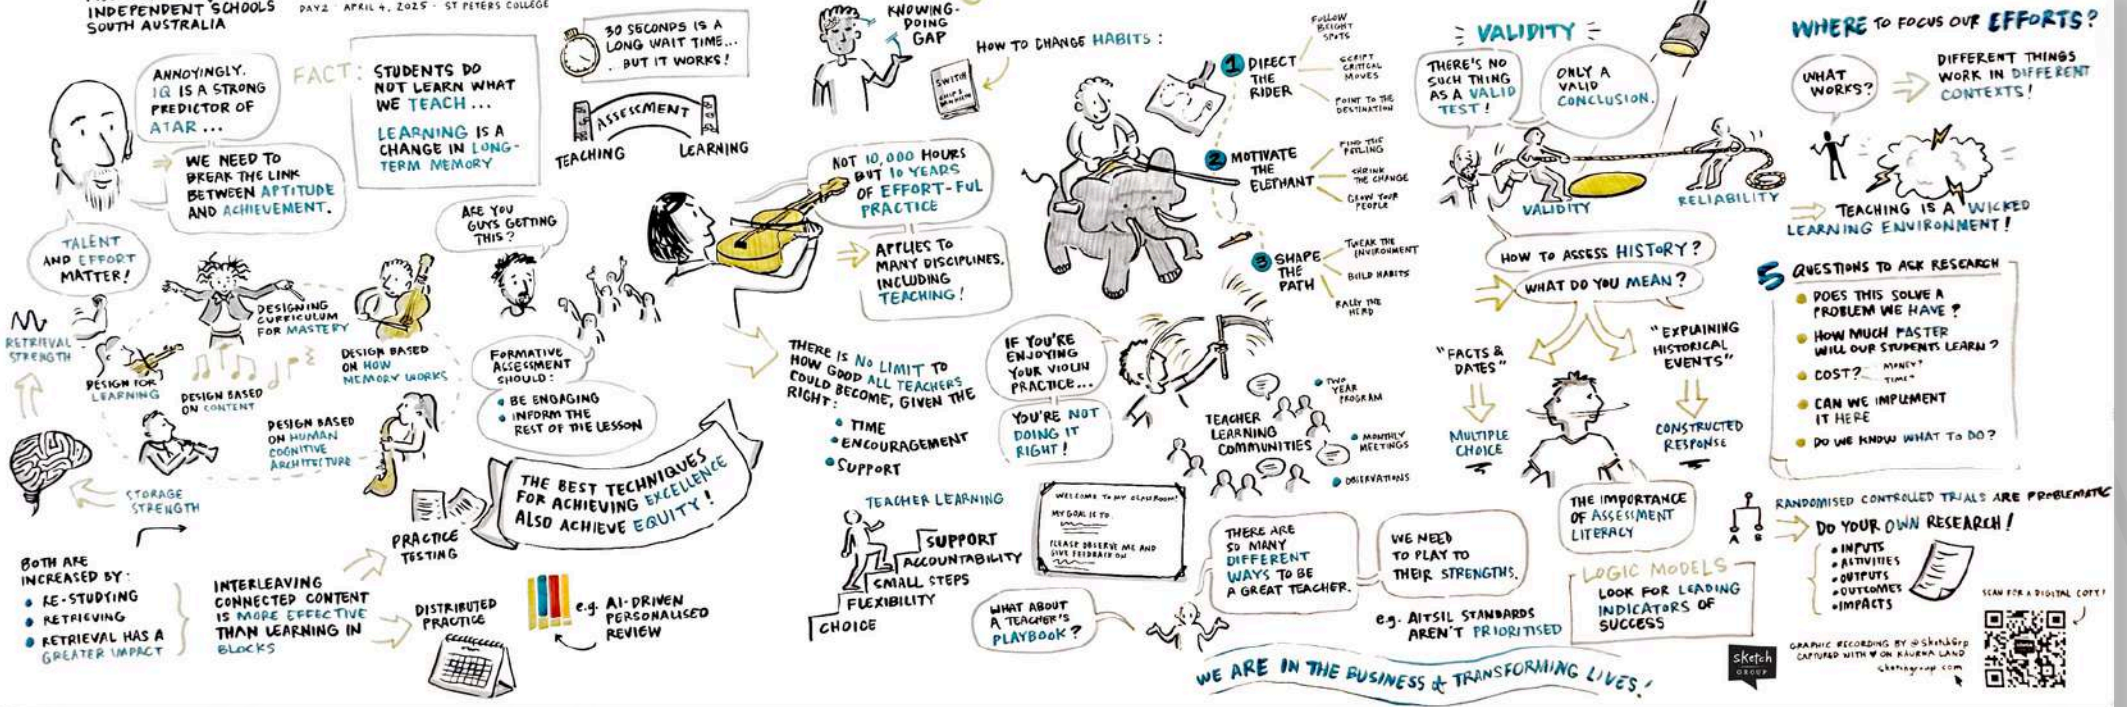 INDEPENDENT SCHOOLS
SOUTH AUSTRALIA
DAY 2 · APRIL 4, 2025 · ST PETERS COLLEGE
ANNOYINGLY,
IQ IS A STRONG
PREDICTOR OF
ATAR ...
WE NEED TO
BREAK THE LINK
BETWEEN APTITUDE
AND ACHIEVEMENT.
TALENT
AND EFFORT
MATTER!
FACT:
STUDENTS DO
NOT LEARN WHAT
WE TEACH ...
LEARNING IS A
CHANGE IN LONG-
TERM MEMORY
30 SECONDS IS A
LONG WAIT TIME...
... BUT IT WORKS!
ASSESSMENT
TEACHING
LEARNING
ARE YOU
GUYS GETTING
THIS?
FORMATIVE
ASSESSMENT
SHOULD:
• BE ENGAGING
• INFORM THE
REST OF THE LESSON
RETRIEVAL
STRENGTH
DESIGNING
CURRICULUM
FOR MASTERY
DESIGN FOR
LEARNING
DESIGN BASED
ON CONTENT
DESIGN BASED
ON HOW
MEMORY WORKS
DESIGN BASED
ON HUMAN
COGNITIVE
ARCHITECTURE
STORAGE
STRENGTH
BOTH ARE
INCREASED BY:
• RE-STUDYING
• RETRIEVING
• RETRIEVAL HAS A
GREATER IMPACT
INTERLEAVING
CONNECTED CONTENT
IS MORE EFFECTIVE
THAN LEARNING IN
BLOCKS
PRACTICE
TESTING
DISTRIBUTED
PRACTICE
e.g. AI-DRIVEN
PERSONALISED
REVIEW
THE BEST TECHNIQUES
FOR ACHIEVING EXCELLENCE
ALSO ACHIEVE EQUITY!
KNOWING-
DOING
GAP
NOT 10,000 HOURS
BUT 10 YEARS
OF EFFORT-FUL
PRACTICE
APPLIES TO
MANY DISCIPLINES,
INCLUDING
TEACHING!
THERE IS NO LIMIT TO
HOW GOOD ALL TEACHERS
COULD BECOME, GIVEN THE
RIGHT:
• TIME
• ENCOURAGEMENT
• SUPPORT
TEACHER LEARNING
SUPPORT
ACCOUNTABILITY
SMALL STEPS
FLEXIBILITY
CHOICE
HOW TO CHANGE HABITS:
SWITCH
1 DIRECT
THE
RIDER
FOLLOW
BRIGHT
SPOTS
SCRIPT
CRITICAL
MOVES
POINT TO THE
DESTINATION
2 MOTIVATE
THE
ELEPHANT
FIND THE
FEELING
SHRINK
THE CHANGE
GROW YOUR
PEOPLE
3 SHAPE
THE
PATH
TWEAK THE
ENVIRONMENT
BUILD HABITS
RALLY THE
HERD
IF YOU'RE
ENJOYING
YOUR VIOLIN
PRACTICE...
YOU'RE NOT
DOING IT
RIGHT!
TEACHER
LEARNING
COMMUNITIES
• TWO
YEAR
PROGRAM
• MONTHLY
MEETINGS
• OBSERVATIONS
WELCOME TO MY CLASSROOM!
MY GOAL IS TO
PLEASE OBSERVE ME AND
GIVE FEEDBACK ON
WHAT ABOUT
A TEACHER'S
PLAYBOOK?
THERE ARE
SO MANY
DIFFERENT
WAYS TO BE
A GREAT TEACHER.
WE NEED
TO PLAY TO
THEIR STRENGTHS.
e.g. AITSIL STANDARDS
AREN'T PRIORITISED
WE ARE IN THE BUSINESS of TRANSFORMING LIVES!
VALIDITY
THERE'S NO
SUCH THING
AS A VALID
TEST!
ONLY A
VALID
CONCLUSION.
VALIDITY
RELIABILITY
HOW TO ASSESS HISTORY?
WHAT DO YOU MEAN?
"FACTS &
DATES"
MULTIPLE
CHOICE
"EXPLAINING
HISTORICAL
EVENTS"
CONSTRUCTED
RESPONSE
THE IMPORTANCE
OF ASSESSMENT
LITERACY
LOGIC MODELS
LOOK FOR LEADING
INDICATORS OF
SUCCESS
WHERE TO FOCUS OUR EFFORTS?
WHAT
WORKS?
DIFFERENT THINGS
WORK IN DIFFERENT
CONTEXTS!
TEACHING IS A WICKED
LEARNING ENVIRONMENT!
5 QUESTIONS TO ASK RESEARCH
• DOES THIS SOLVE A
PROBLEM WE HAVE?
• HOW MUCH FASTER
WILL OUR STUDENTS LEARN?
• COST? MONEY?
TIME?
• CAN WE IMPLEMENT
IT HERE
• DO WE KNOW WHAT TO DO?
A B
RANDOMISED CONTROLLED TRIALS ARE PROBLEMATIC
DO YOUR OWN RESEARCH!
• INPUTS
• ACTIVITIES
• OUTPUTS
• OUTCOMES
• IMPACTS
SCAN FOR A DIGITAL COPY!
GRAPHIC RECORDING BY @SketchGrp
CAPTURED WITH ♥ ON KAURNA LAND
sketchgroup.com
sketch
GROUP